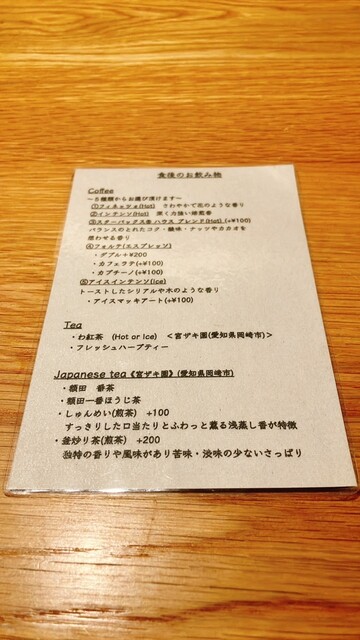 食後のお飲み物
Coffee
～5種類からお選び頂けます～
①フィネッツォ(Hot) さわやかで花のような香り
②インテンソ(Hot) 深く力強い焙煎香
③スターバックス® ハウス ブレンド(Hot) (+¥100)
バランスのとれたコク・酸味・ナッツやカカオを
思わせる香り
④フォルテ(エスプレッソ)
・ダブル+¥200
・カフェラテ(+¥100)
・カプチーノ(+¥100)
⑤アイスインテンソ(Ice)
トーストしたシリアルや木のような香り
・アイスマッキアート(+¥100)
Tea
・わ紅茶 (Hot or Ice) ＜宮ザキ園(愛知県岡崎市)＞
・フレッシュハーブティー
Japanese tea《宮ザキ園》(愛知県岡崎市)
・額田 番茶
・額田一番ほうじ茶
・しゅんめい(煎茶) +100
すっきりした口当たりとふわっと薫る浅蒸し香が特徴
・釜炒り茶(煎茶) +200
独特の香りや風味があり苦味・渋味の少ないさっぱり